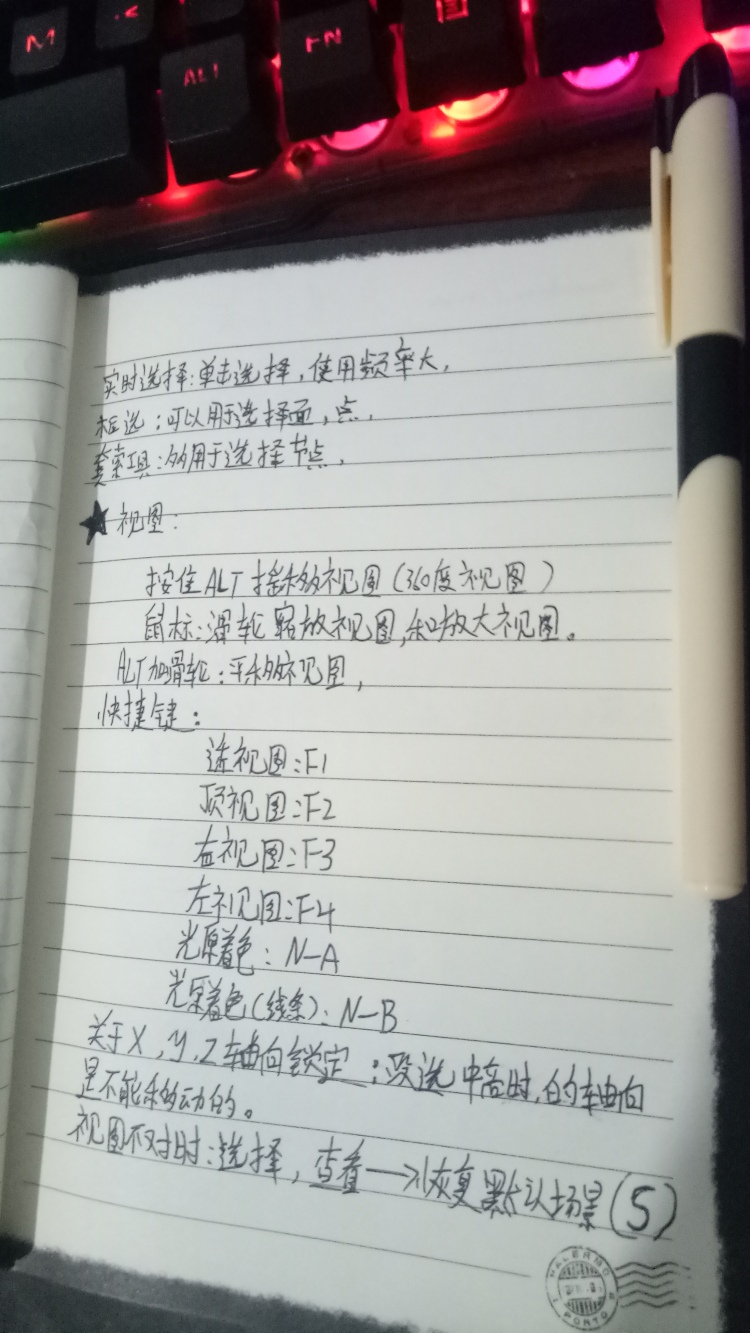 M
ALT
FN
实时选择:单击选择,使用频率大,
框选:可以用于选择面,点.
套索工具:多用于选择节点,
★视图:
按住ALT 摇移视图(360度视图)
鼠标:滑轮 缩放视图,和放大视图。
ALT加滑轮:平移视图,
快捷键:
透视图:F1
顶视图:F2
右视图:F3
左视图:F4
光影着色:N-A
光影着色(线条):N-B
关于X,Y,Z轴向锁定:没选中高时,的轴向
是不能移动的。
视图不对时:选择,查看→恢复默认场景(5)
PALERMO
PORTO